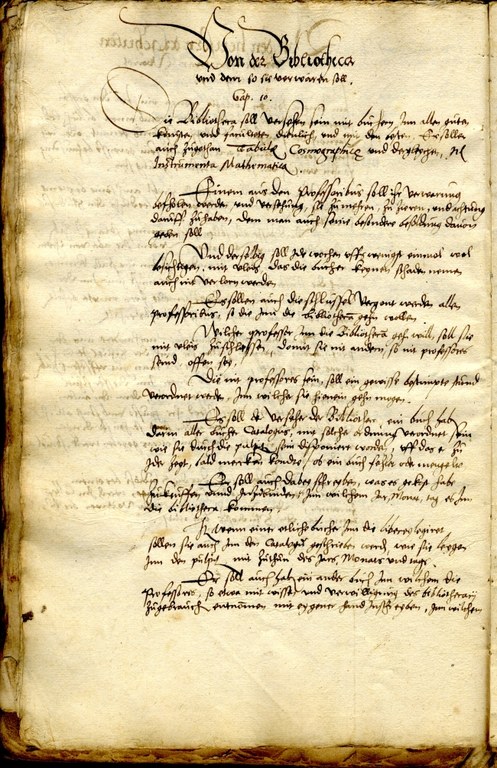 Von der Bibliotheca
vnd dem so sie verwaren soll.
Cap. 10.
Die Bibliotheca soll versehen sein mit büchern Inn allen guten
künsten, vnd faculteten, dienlich, vnd mit den besten. Es sollen
auch zugethan Tabulæ Cosmographicæ vnd dergleichen, Vel
Instrumenta Mathematica.
Einem aus den Professoribus soll ihr verwarung
befohlen werden vnd versehung, sie zu mehren, zu zieren, vnd achtung
darauff zu haben, dem man auch seine besonder besoldung dauon
geben soll.
Vnd derselbig soll Jede wochen auffs wenigst einmal wol
besichtigen, mit vleis, das die bücher keynen schaden nemen
auch nit verlorn werden.
Es sollen auch die schlüssel vergont werden allen
professoribus, so die Inn die Bibliotheca gehn wollen.
Welcher professor Inn die Bibliotheca gehn will, soll sie
mit vleis zuschliessen, damit sie nit andern, so nit professores
seind, offen sey.
Die nit professores sein, soll ein gewisse bestimpte stund
verordnet werden, Inn welcher sie hienein gehn mögen.
Es soll der versehe der Bibliothec, ein buch haben
darin alle bücher Catalogus, mit solcher ordnung verordnet sein
wie sie durch die pulpet sein disponiert worden, auff das er zu
Jeder zeyt, bald mercken köndte, ob ein buch fehlet oder mangelte
Er soll auch dabey schreyben, was er
vnd Inn welchem Jar, Monat, tag es Inn
die bibliotheca kommen.
wenn einer etliche bücher Inn die liberey
sollen sie auch Inn den Catalogum geschrieben werden, wie sie liegen
Inn den pulpet mit des Jars, Monats vnd tags.
Er soll auch haben ein ander buch Inn welchem die
Professores, so etwa mit wissen vnd verwilligung des bibliothecarij
zu gebrauch entnommen mit eygener hand Inschreyben, Inn welchem